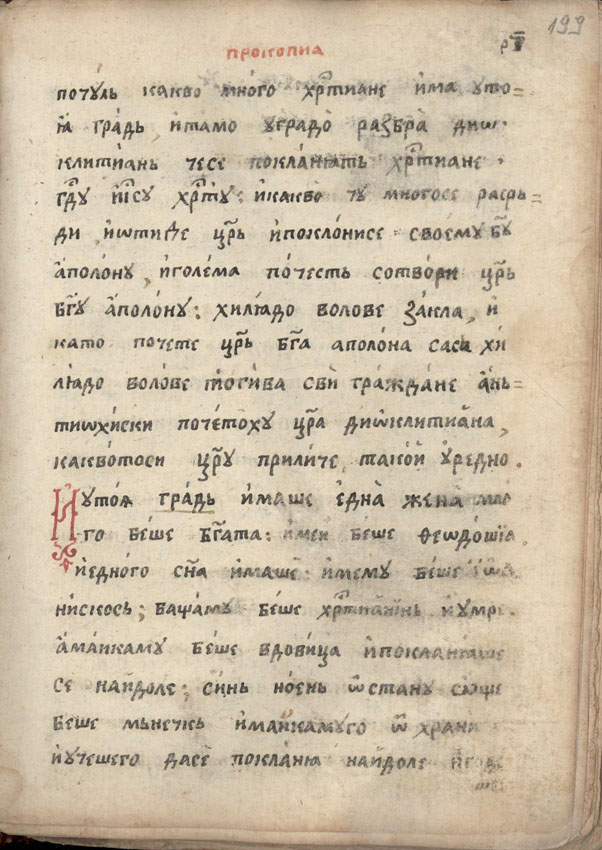 199
прокопиа
потꙋль какво много хрⷭ҇тиане има ꙋто=
ꙗ градь, итамо ꙋградо разбра диѡ
клитиань чесе покланꙗть хрⷭ҇тиане
гⷭ҇дꙋ іисꙋ хрⷭ҇тꙋ: икакво тꙋ многосе расрь=
ди, иѡтиде цр҃ь ипоклонисе своемꙋ бг҃ꙋ
аполонꙋ, иголема почесть сотвори цр҃ь
бг҃ꙋ аполонꙋ: хилꙗдо волове закла, и
като почете цр҃ь бг҃а аполона саса хи
лꙗдо волове тогива сви граждане ань=
тиѡхиски почетохꙋ цр҃а диѡклитиана,
каквотоси цр҃ꙋ приличе, такой ꙋредно.
Иꙋтоꙗ градь имаше една жена мно
го беше бг҃ата: имеи беше ѳеѡдосіа
иедного сн҃а имаше: имемꙋ беше
нискось; бащамꙋ беше хрⷭ҇тианинь иꙋмре.
амаикамꙋ беше вдовица ипокланꙗше
се найдоле; синь ноень ѿстанꙋ сꙗще
беше мьнечкь имаикамꙋго ѿ храни
иꙋчешего дасе покланꙗ найдоле